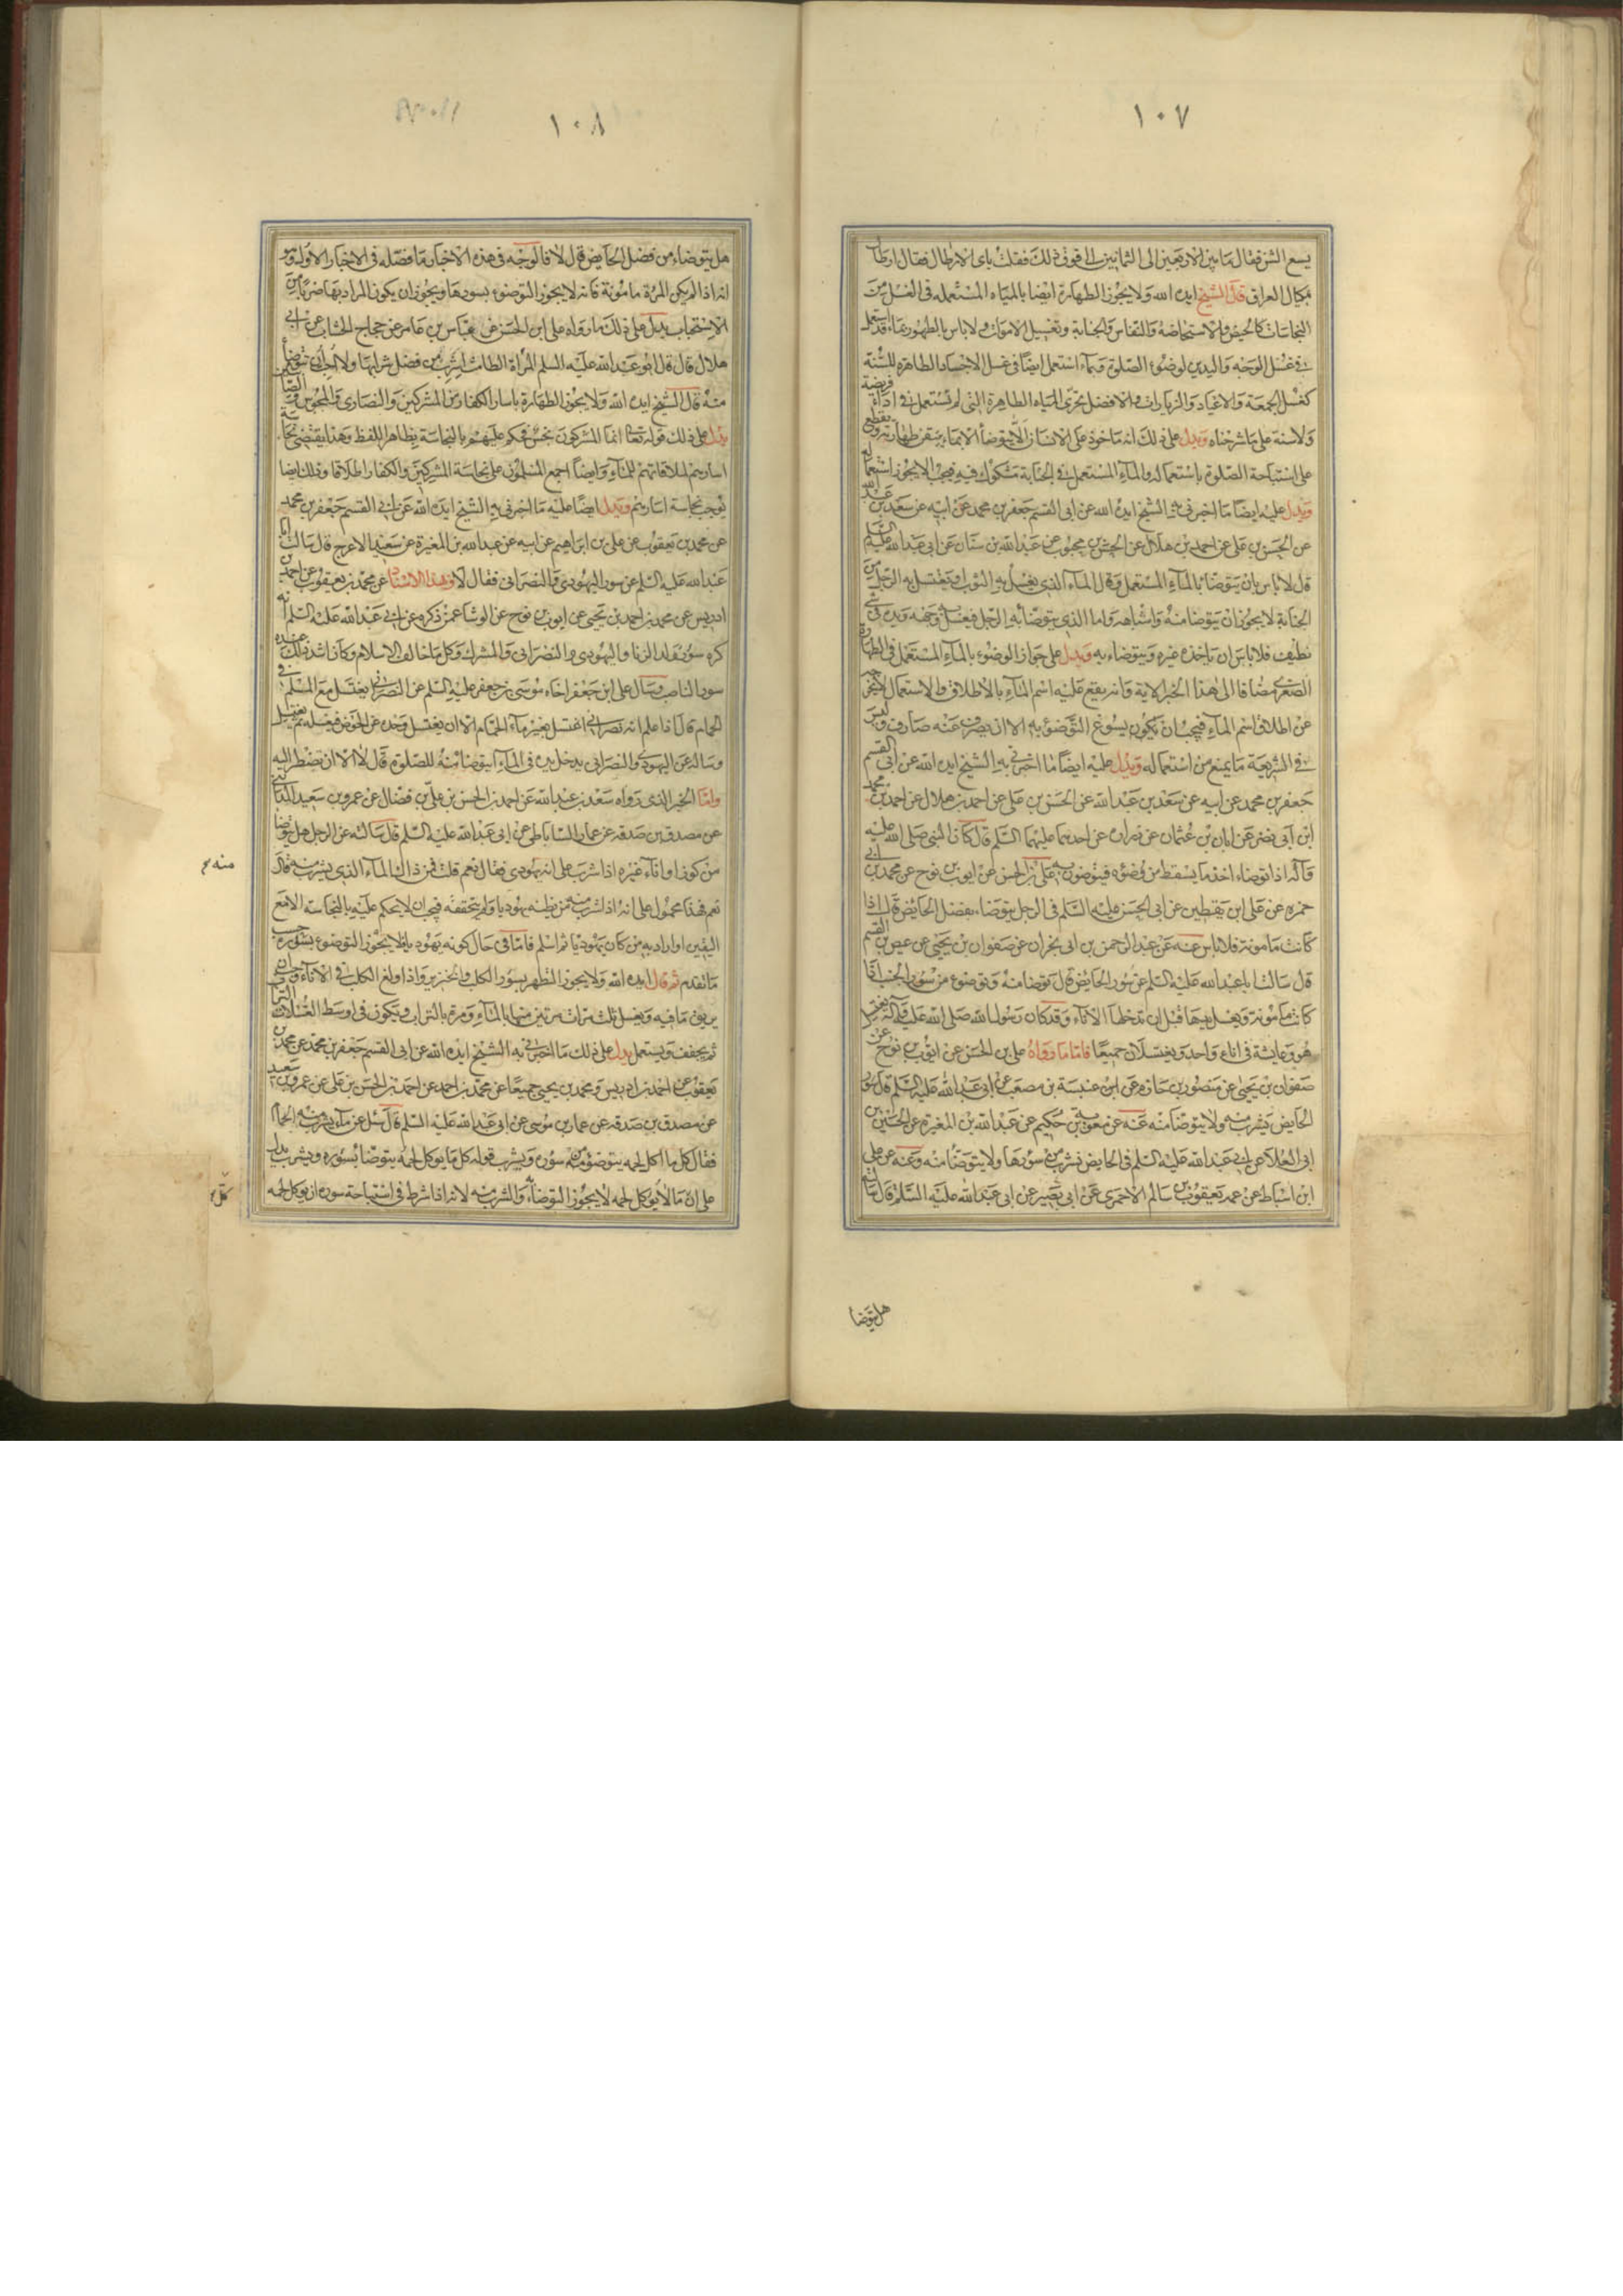 ١٠٧
يسع الشن فقال ما بين الاربعين الى الثمانين الى فوق ذلك فقلت باى الارطال فقال ارطال
مكيال العراق قال الشيخ ايده الله ولا يجوز الطهارة ايضا بالمياه المستعمله فى الغسل من
النجاسات كالحيض والاستحاضة والنفاس والجنابة وتغسيل الاموات ولا باس بالطهور بماء قد استعمل
فى غسل الوجه واليدين لوضوء الصلوة وبماء استعمل ايضا فى غسل الاجساد الطاهرة للسنة
كغسل الجمعة والاعياد والزيارات والافضل تحرى المياه الطاهرة التى لم تستعمل فى اداء فريضة
ولا سنة على ما شرحناه ويدل على ذلك انه ماخوذ على الانسان الا يتوضأ الا بماء يتيقن طهارته ويقطع
على استباحة الصلوة باستعماله والماء المستعمل فى الجنابة مشكوك فيه فيجب الا يجوز استعماله
ويدل عليه ايضا ما اخبرنى به الشيخ ايده الله عن ابى القسم جعفر بن محمد عن ابيه عن سعد بن عبد الله
عن الحسن بن على عن احمد بن هلال عن الحسن بن محبوب عن عبد الله بن سنان عن ابى عبد الله عليه السلم
قال لا باس بان يتوضا بالماء المستعمل وقال الماء الذى يغسل به الثوب او يغتسل به الرجل من
الجنابة لا يجوز ان يتوضا منه واشباهه واما الذى يتوضأ به الرجل فيغسل وجهه ويده فى شئ
نظيف فلا باس ان ياخذه غيره ويتوضاء به ويدل على جواز الوضوء بالماء المستعمل فى الطهارة
الصغرى مضافا الى هذا الخبر الاية وانه يقع عليه اسم الماء بالاطلاق والاستعمال لا يخرجه
عن اطلاق اسم الماء فيجب ان يكون يسوغ التوضؤ به الا ان يصرف عنه صارف وليس
فى الشريعة ما يمنع من استعماله ويدل عليه ايضا ما اخبرنى به الشيخ ايده الله عن ابى القسم
جعفر بن محمد عن ابيه عن سعد بن عبد الله عن الحسن بن على عن احمد بن هلال عن احمد بن محمد
ابن ابى نصر عن ابان بن عثمان عن زرارة عن احدهما عليهما السلم قال كان النبى صلى الله عليه
وآله اذا توضاء اخذ ما يسقط من وضوئه فيتوضون به على بن الحسن عن ايوب بن نوح عن محمد بن ابى
حمزه عن على ابن يقطين عن ابى الحسن عليه السلم فى الرجل يتوضاء بفضل الحايض قال اذا
كانت مامونة فلا باس عنه عن عبد الرحمن بن ابى نجران عن صفوان بن يحيى عن عيص بن القسم
قال سالت ابا عبد الله عليه السلم عن سؤر الحايض قال توضا منه وتوضوء من سؤر الجنب اذا
كانت مامونة ويغسل يديها قبل ان تدخلها الاناء وقد كان رسول الله صلى الله عليه وآله يغتسل
هو وعايشة فى اناء واحد ويغتسلان جميعا فاما ما رواه على بن الحسن عن ايوب بن نوح عن
صفوان بن يحيى عن منصور بن حازم عن ابن عنبسة بن مصعب عن ابى عبد الله عليه السلم قال سؤر
الحايض يشرب منه ولا يتوضا منه عنه عن معوية بن حكيم عن عبد الله بن المغيرة عن الحسين بن
ابى العلاء عن ابى عبد الله عليه السلم فى الحايض نشرب من سؤرها ولا يتوضا منه وعنه عن على
ابن اسباط عن عمه يعقوب بن سالم الاحمرى عن ابى بصير عن ابى عبد الله عليه السلم قال سالته
هل يتوضا
١٠٨
هل يتوضاء من فضل الحايض قال لا فالوجه فى هذه الاخبار ما فصله فى الاخبار الاوله وهو
انه اذا لم يكن المرة مامونة فانه لا يجوز التوضوء بسورها ويجوز ان يكون المراد بها ضربا من
الاستحباب يدل على ذلك ما رواه على ابن الحسن عن عباس بن عامر عن حجاج الخشاب عن ابى
هلال قال قال ابو عبد الله عليه السلم المراة الطامث اشرب من فضل شرابها ولا احب ان تتوضأ
منه قال الشيخ ايده الله ولا يجوز الطهارة باسار الكفار من المشركين والنصارى والمجوس والصابئين
يدل على ذلك قوله تعالى انما المشركون نجس فحكم عليهم بالنجاسة بظاهر اللفظ وهذا يقتضى نجاسة
اسارهم لملاقاتهم للماء وايضا اجمع المسلمون على نجاسة المشركين والكفار اطلاقا وذلك ايضا
يوجب نجاسة اسارهم ويدل ايضا عليه ما اخبرنى به الشيخ ايده الله عن ابى القسم جعفر بن محمد
عن محمد بن يعقوب عن على بن ابراهيم عن ابيه عن عبد الله بن المغيرة عن سعيد الاعرج قال سالت ابا
عبد الله عليه السلم عن سور اليهودى والنصرانى فقال لا وبهذا الاسناد عن محمد بن يعقوب عن احمد بن
ادريس عن محمد بن احمد بن يحيى عن ايوب بن نوح عن الوشا عمن ذكره عن ابى عبد الله عليه السلم انه
كره سور ولد الزنا واليهودى والنصرانى والمشرك وكل ما خالف الاسلام وكان اشد ذلك عنده
سور الناصب وسال على ابن جعفر اخاه موسى بن جعفر عليه السلم عن النصرانى يغتسل مع المسلم فى
الحمام قال اذا علم انه نصرانى اغتسل بغير ماء الحمام الا ان يغتسل وحده على الحوض فيغسله ثم يغتسل
وساله عن اليهودى والنصرانى يدخل يده فى الماء ايتوضا منه للصلوة قال لا الا ان تضطر اليه
واما الخبر الذى رواه سعد بن عبد الله عن احمد بن الحسن بن على بن فضال عن عمرو بن سعيد المداينى
عن مصدق بن صدقه عن عمار الساباطى عن ابى عبد الله عليه السلم قال سالته عن الرجل هل يتوضا
من كوز او اناء غيره اذا شرب على انه يهودى فقال نعم قلت فمن ذاك الماء الذى يشرب منه قال
منه
نعم فهذا محمول على انه اذا شرب منه من يظنه يهوديا ولم يتحققه فيجب ان لا يحكم عليه بالنجاسة الا مع
اليقين او اراد به من كان يهوديا ثم اسلم فاما فى حال كونه يهوديا فلا يجوز التوضوء بسوره حسب
ما تقدم ثم قال ايده الله ولا يجوز التطهر بسؤر الكلب والخنزير واذا ولغ الكلب فى الاناء وجب ان
يريق ما فيه ويغسل ثلث مرات مرتين منها بالماء ومرة بالتراب ويكون فى اوسط الغسلات التراب
ثم يجفف ويستعمل يدل على ذلك ما اخبرنى به الشيخ ايده الله عن ابى القسم جعفر بن محمد عن محمد بن
يعقوب عن احمد بن ادريس ومحمد بن يحيى جميعا عن محمد بن احمد عن احمد بن الحسن بن على عن عمرو بن سعيد
عن مصدق بن صدقه عن عمار بن موسى عن ابى عبد الله عليه السلم قال سئل عن ماء يشرب منه الحمام
فقال كل ما اكل لحمه يتوضوء من سوره ويشرب قوله كل ما يوكل لحمه يتوضا بسؤره ويشرب يدل
على ان ما لا يوكل لحمه لا يجوز التوضاء به والشرب منه لانه اذا شرط فى استباحة سوره ان يوكل لحمه